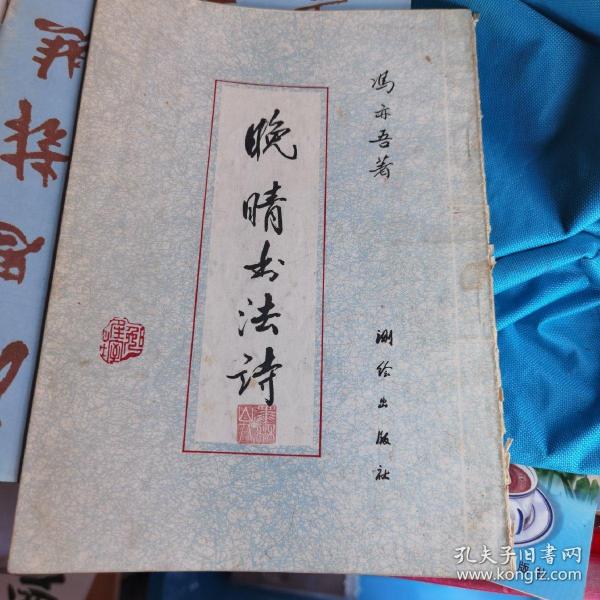 冯亦吾著
晚晴书法诗
测绘出版社
版社
孔夫子旧书网
www.kongfz.com